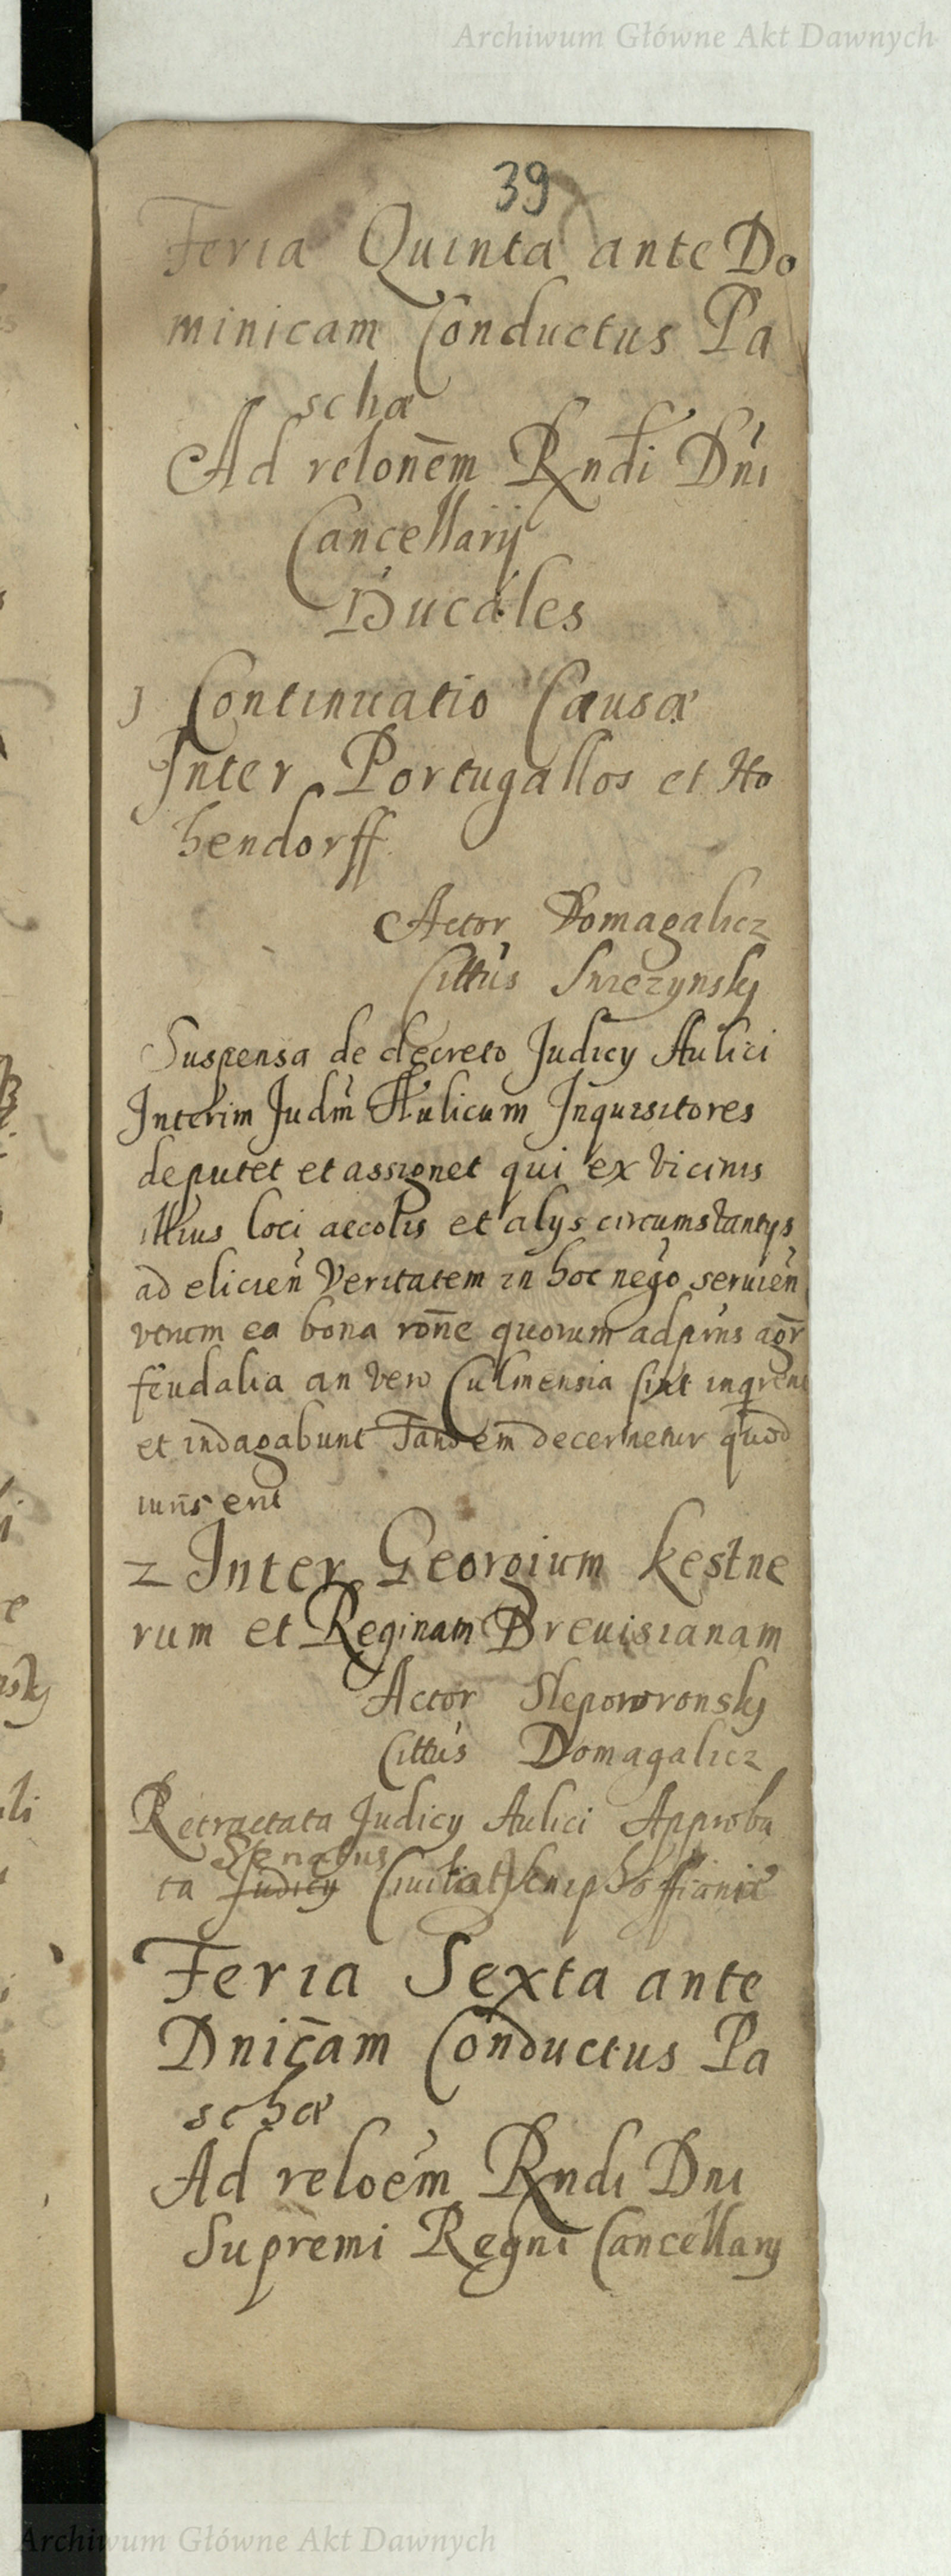 Archiwum Główne Akt Dawnych
39
Feria Quinta ante Do
minicam Conductus Pa
schæ
Ad relonēm Rndi Dni
Cancellarij
Ducales
1 Continuatio Causæ
Inter Portugallos et Ho
hendorff
Actor Domagalicz
Cittus
Suspensa de decreto Judicy Aulici
Interim Judm Aulicum Inquisitores
deputet et assignet qui ex vicinis
illius loci accolis et alys circumstantys
ad elicien veritatem in hoc nego seruien
verum ea bona rone quorum adprns agr
feudalia an vero Culmensia sint
et indagabunt Tandem decernetur quod
iuris erit
2 Inter Georgium Kestne
rum et Reginam Breuisianam
Actor Sleporwronsky
Cittus Domagalicz
Retractata Judicy Aulici Approba
Senatus
ta Judicy
Feria Sexta ante
Dnicam Conductus Pa
schæ
Ad reloem Rndi Dni
Supremi Regni Cancellary
Archiwum Główne Akt Dawnych